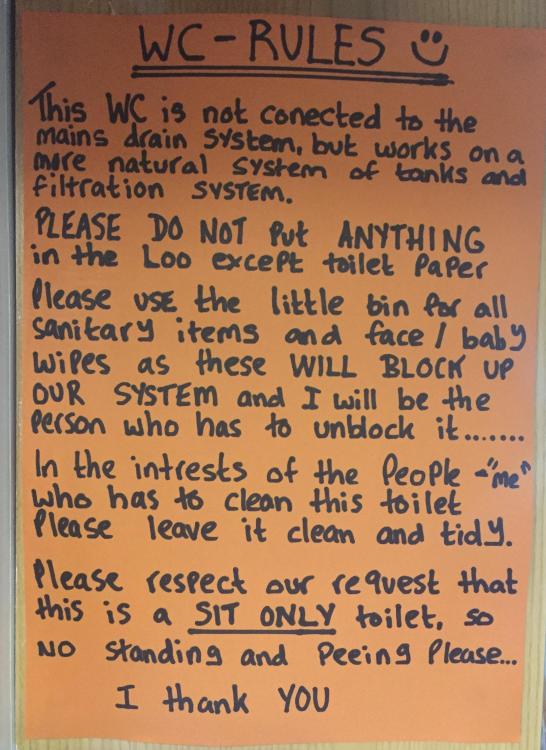 WC-RULES
This WC is not conected to the
mains drain system, but works on a
more natural system of tanks and
filtration SYSTEM.
PLEASE DO NOT Put ANYTHING
in the Loo except toilet Paper
Please USE the little bin for all
sanitary items and face / baby
wipes as these WILL BLOCK UP
OUR SYSTEM and I will be the
Person who has to unblock it.......
In the intrests of the People -"me"
who has to clean this toilet
Please leave it clean and tidy.
Please respect our request that
this is a SIT ONLY toilet, so
NO standing and Peeing Please...
I thank YOU